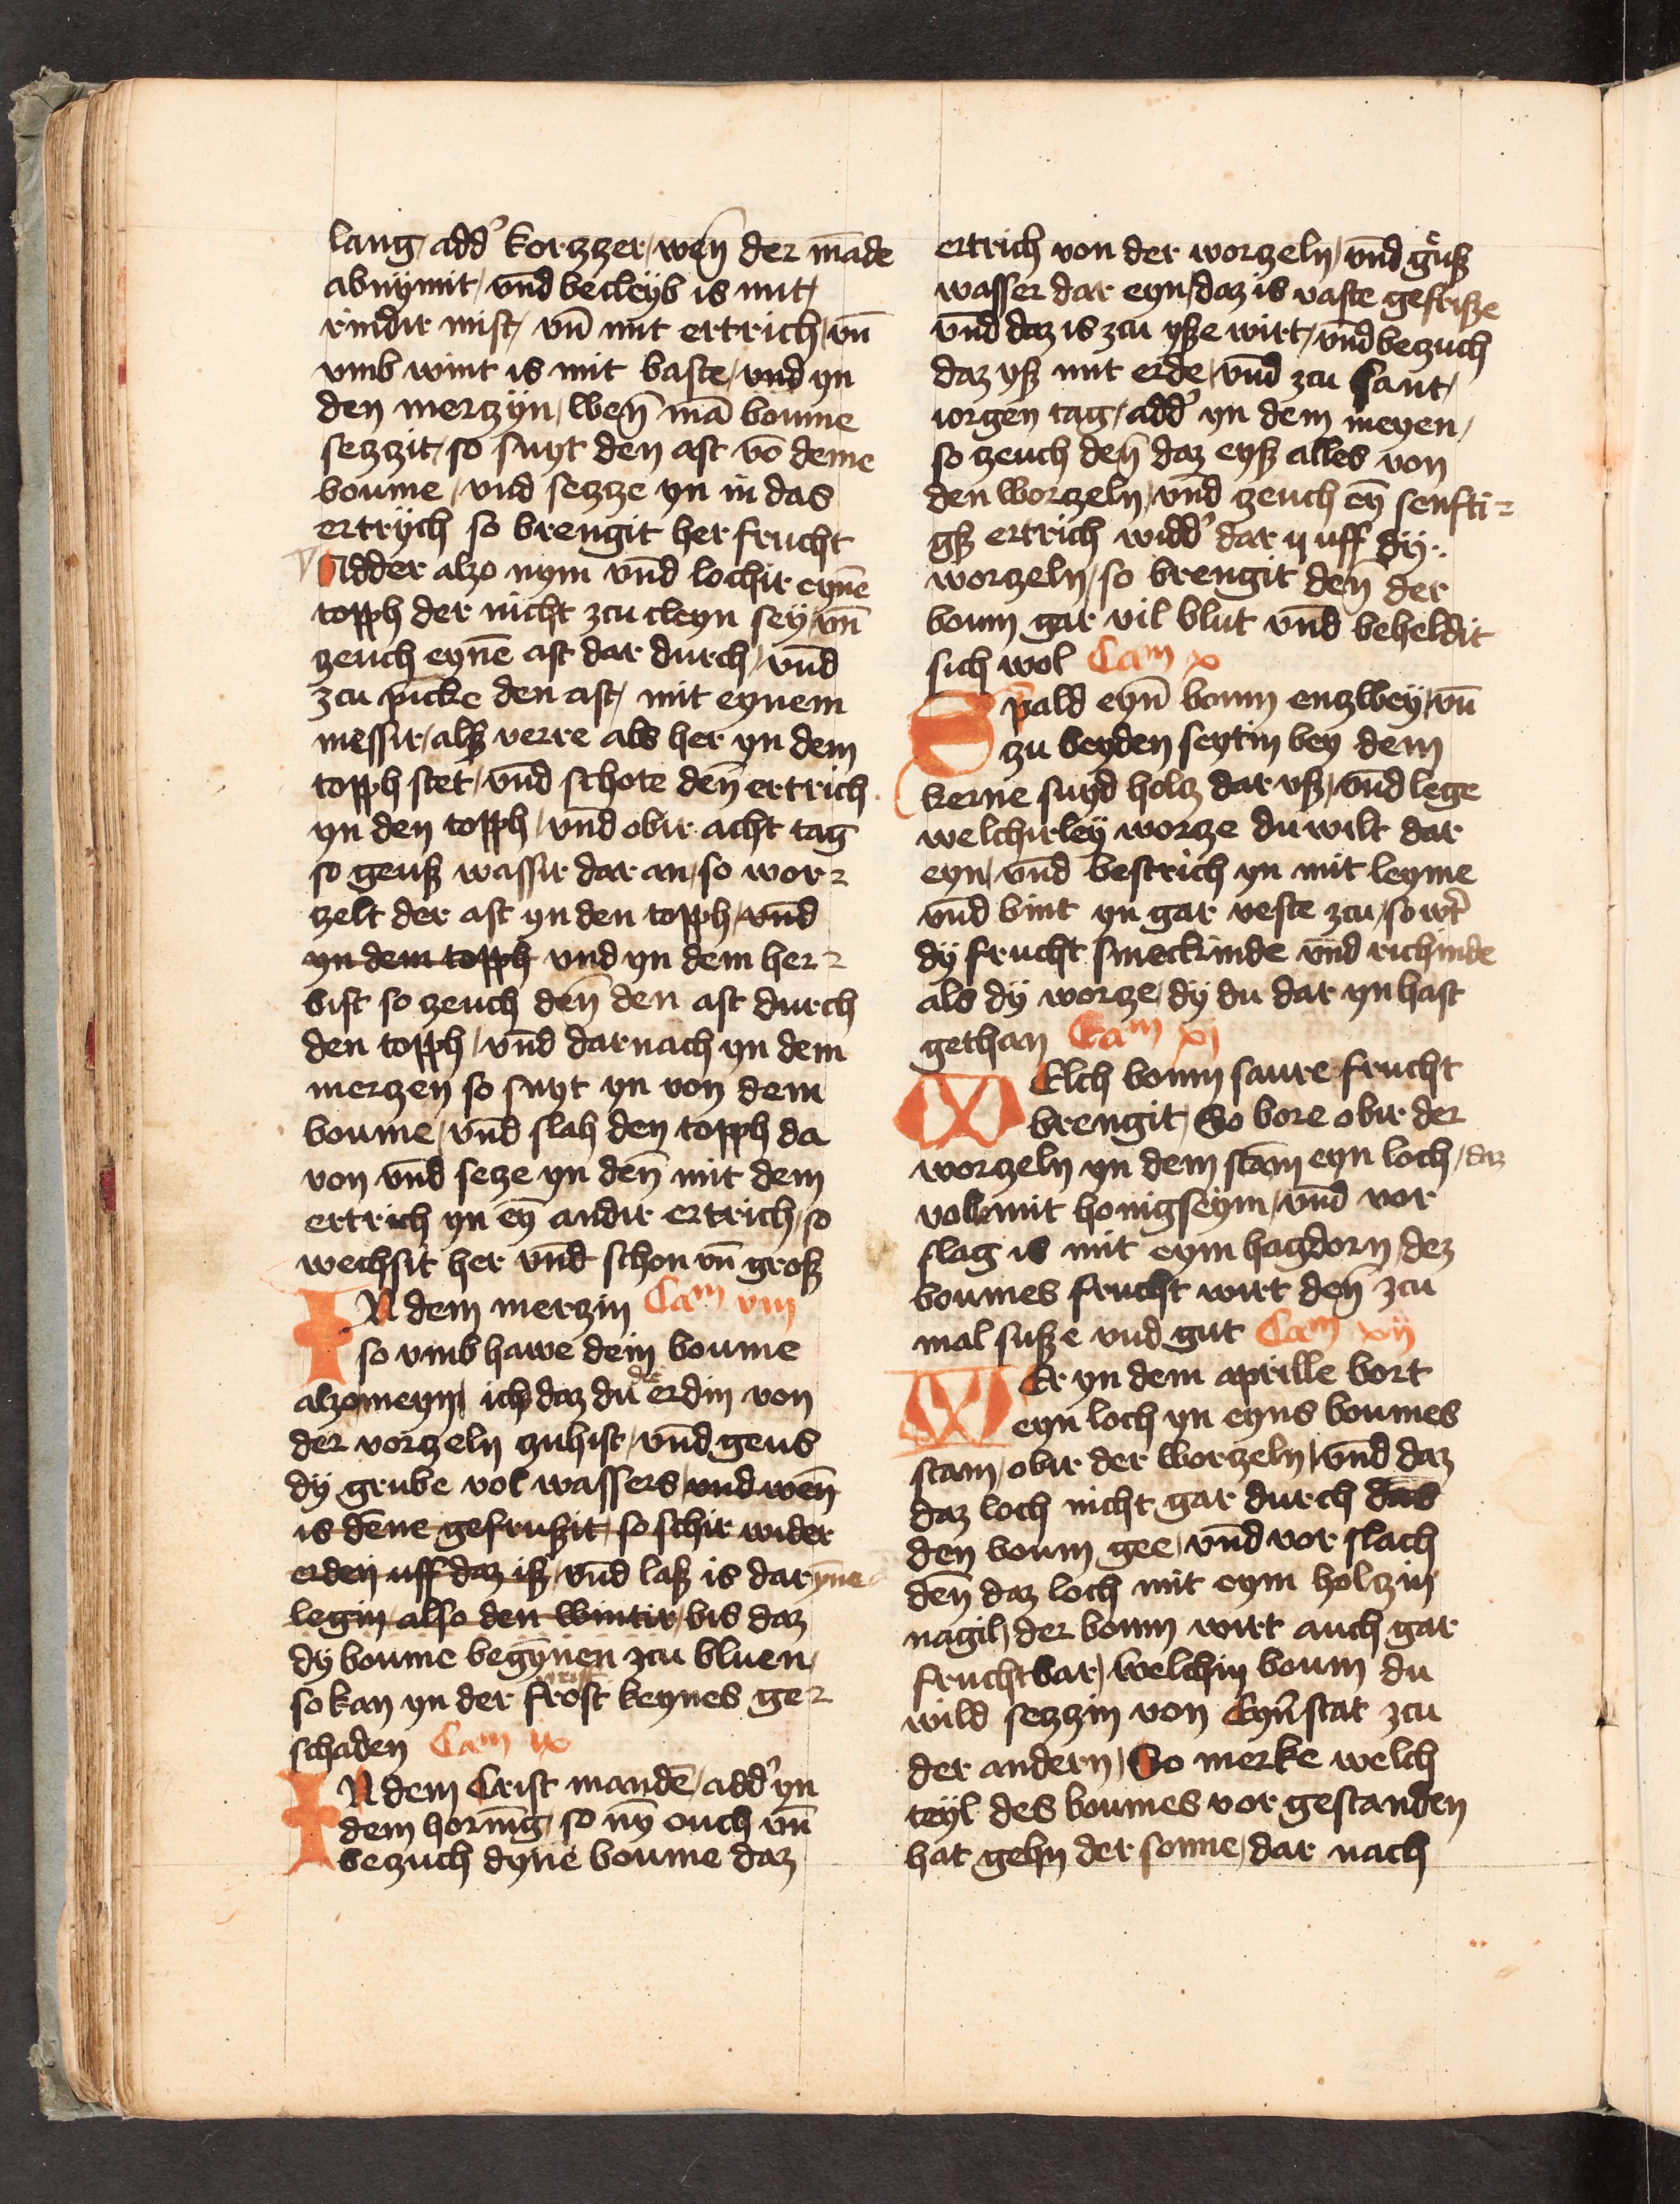 lang / add' korzzer / wen̄ der māde
abnÿmit / vnd becleÿb is mit /
rindir mist / vn̄ mit ertrich / vn̄
vmb wint is mit baste / vnd yn
den mertzÿn / wen̄ mā boume
sezzit / so snyt den ast vō deme
boume / vnd sezze yn in das
ertrÿch so brengit her frucht
Adder alzo nym vnd lochir eynē
topph der nicht zcu cleyn seÿ / vn̄
zeuch eynē ast dar durch / vnd
zcu picke den ast / mit eynem
messir / alß verre als her yn dem
topph stet / vnd schote den̄ ertrich
yn den topph / vnd obir acht tag
so geuß wassir dar an / so wor=
zelt der ast yn den topph / vnd
yn dem topph vnd yn dem her=
bist so zeuch den̄ den ast durch
den topph / vnd darnach yn dem
merzen so snyt yn von dem
boume / vnd slah den topph da
von vnd seze yn den̄ mit dem
ertrich yn eȳ andir ertrich / so
wechsit her vnd schon vn̄ groß
IN dem merzin Cam viii
so vmb hawe dein boume
alzo meyn ich daz du die erdin von
der vorzeln zuhist / vnd geus
dÿ grube vol wassers / vnd wen̄
is dēne gefrußit / so schir wider
erden uff daz iß / vnd laß is dar ynne
legin / also den wintir / bis daz
dÿ boume begȳnen zcu bluen /
so kan yn der frost keynes ge=
schaden Cam ix
IN dem Crist mandē / add' yn
dem hornīg so nȳ ouch vn̄
bezuch dyne boume daz
ertrich von der worzeln / vnd guß
wasser dar eyn / daz is vaste gefriße
vnd daz is zcu yße wirt / vnd bezuch
daz yß mit erde / vnd zcu sant /
iorgen tag / add' yn dem meyen /
so zeuch den̄ daz eyß alles von
den worzeln / vnd zeuch eȳ senfti=
gß ertrich widd' dar ÿ uff dÿ
worzeln / so brengit den̄ der
boum gar vil blut vnd beheldit
sich wol Cam x
Spald eyn̄ boum enzweÿ / vn̄
zu beyden seytin bey dem
kerne snyd holz dar vß / vnd lege
welchirleÿ worze du wilt dar
eyn / vnd bestrich yn mit leyme
vnd bint yn gar veste zcu / so wt'
dÿ frucht smeckinde vnd richinde
als dÿ worze / dÿ du dar yn hast
gethan Cam xi
WElch boum saure frucht
brengit / So bore obir der
worzeln yn dem stam eyn loch / daz
vol mit honigseym / vnd vor
slag is mit eym hagdorn / dez
boumes frucht wirt den̄ zcu
mal suße vnd gut Cam xii
WEr yn dem aprille bort
eyn loch yn eyns boumes
stam / obir der worzeln / vnd daz
daz loch nicht gar durch das
den boum gee / vnd vor slach
den̄ daz loch mit eym holzin
nagil / der boum wirt auch gar
fruchtbar / welchin boum du
wild sezzin von Eyn' stat zcu
der andern / So merke welch
teÿl des boumes vor gestanden
hat gehn der sonne / dar nach